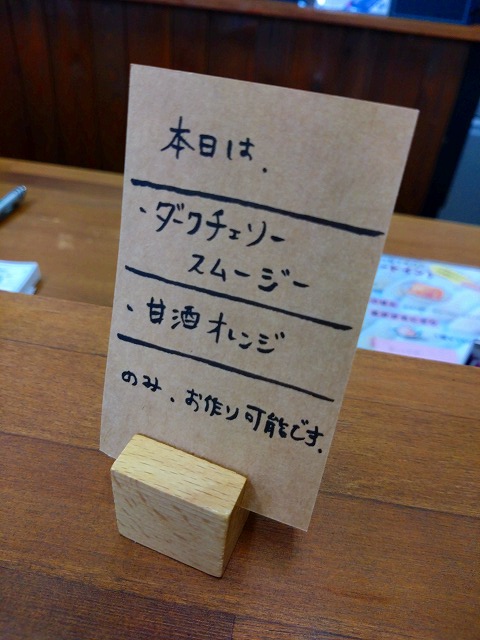 本日は、
・ダークチェリー
スムージー
・甘酒オレンジ
のみ、お作り可能です。